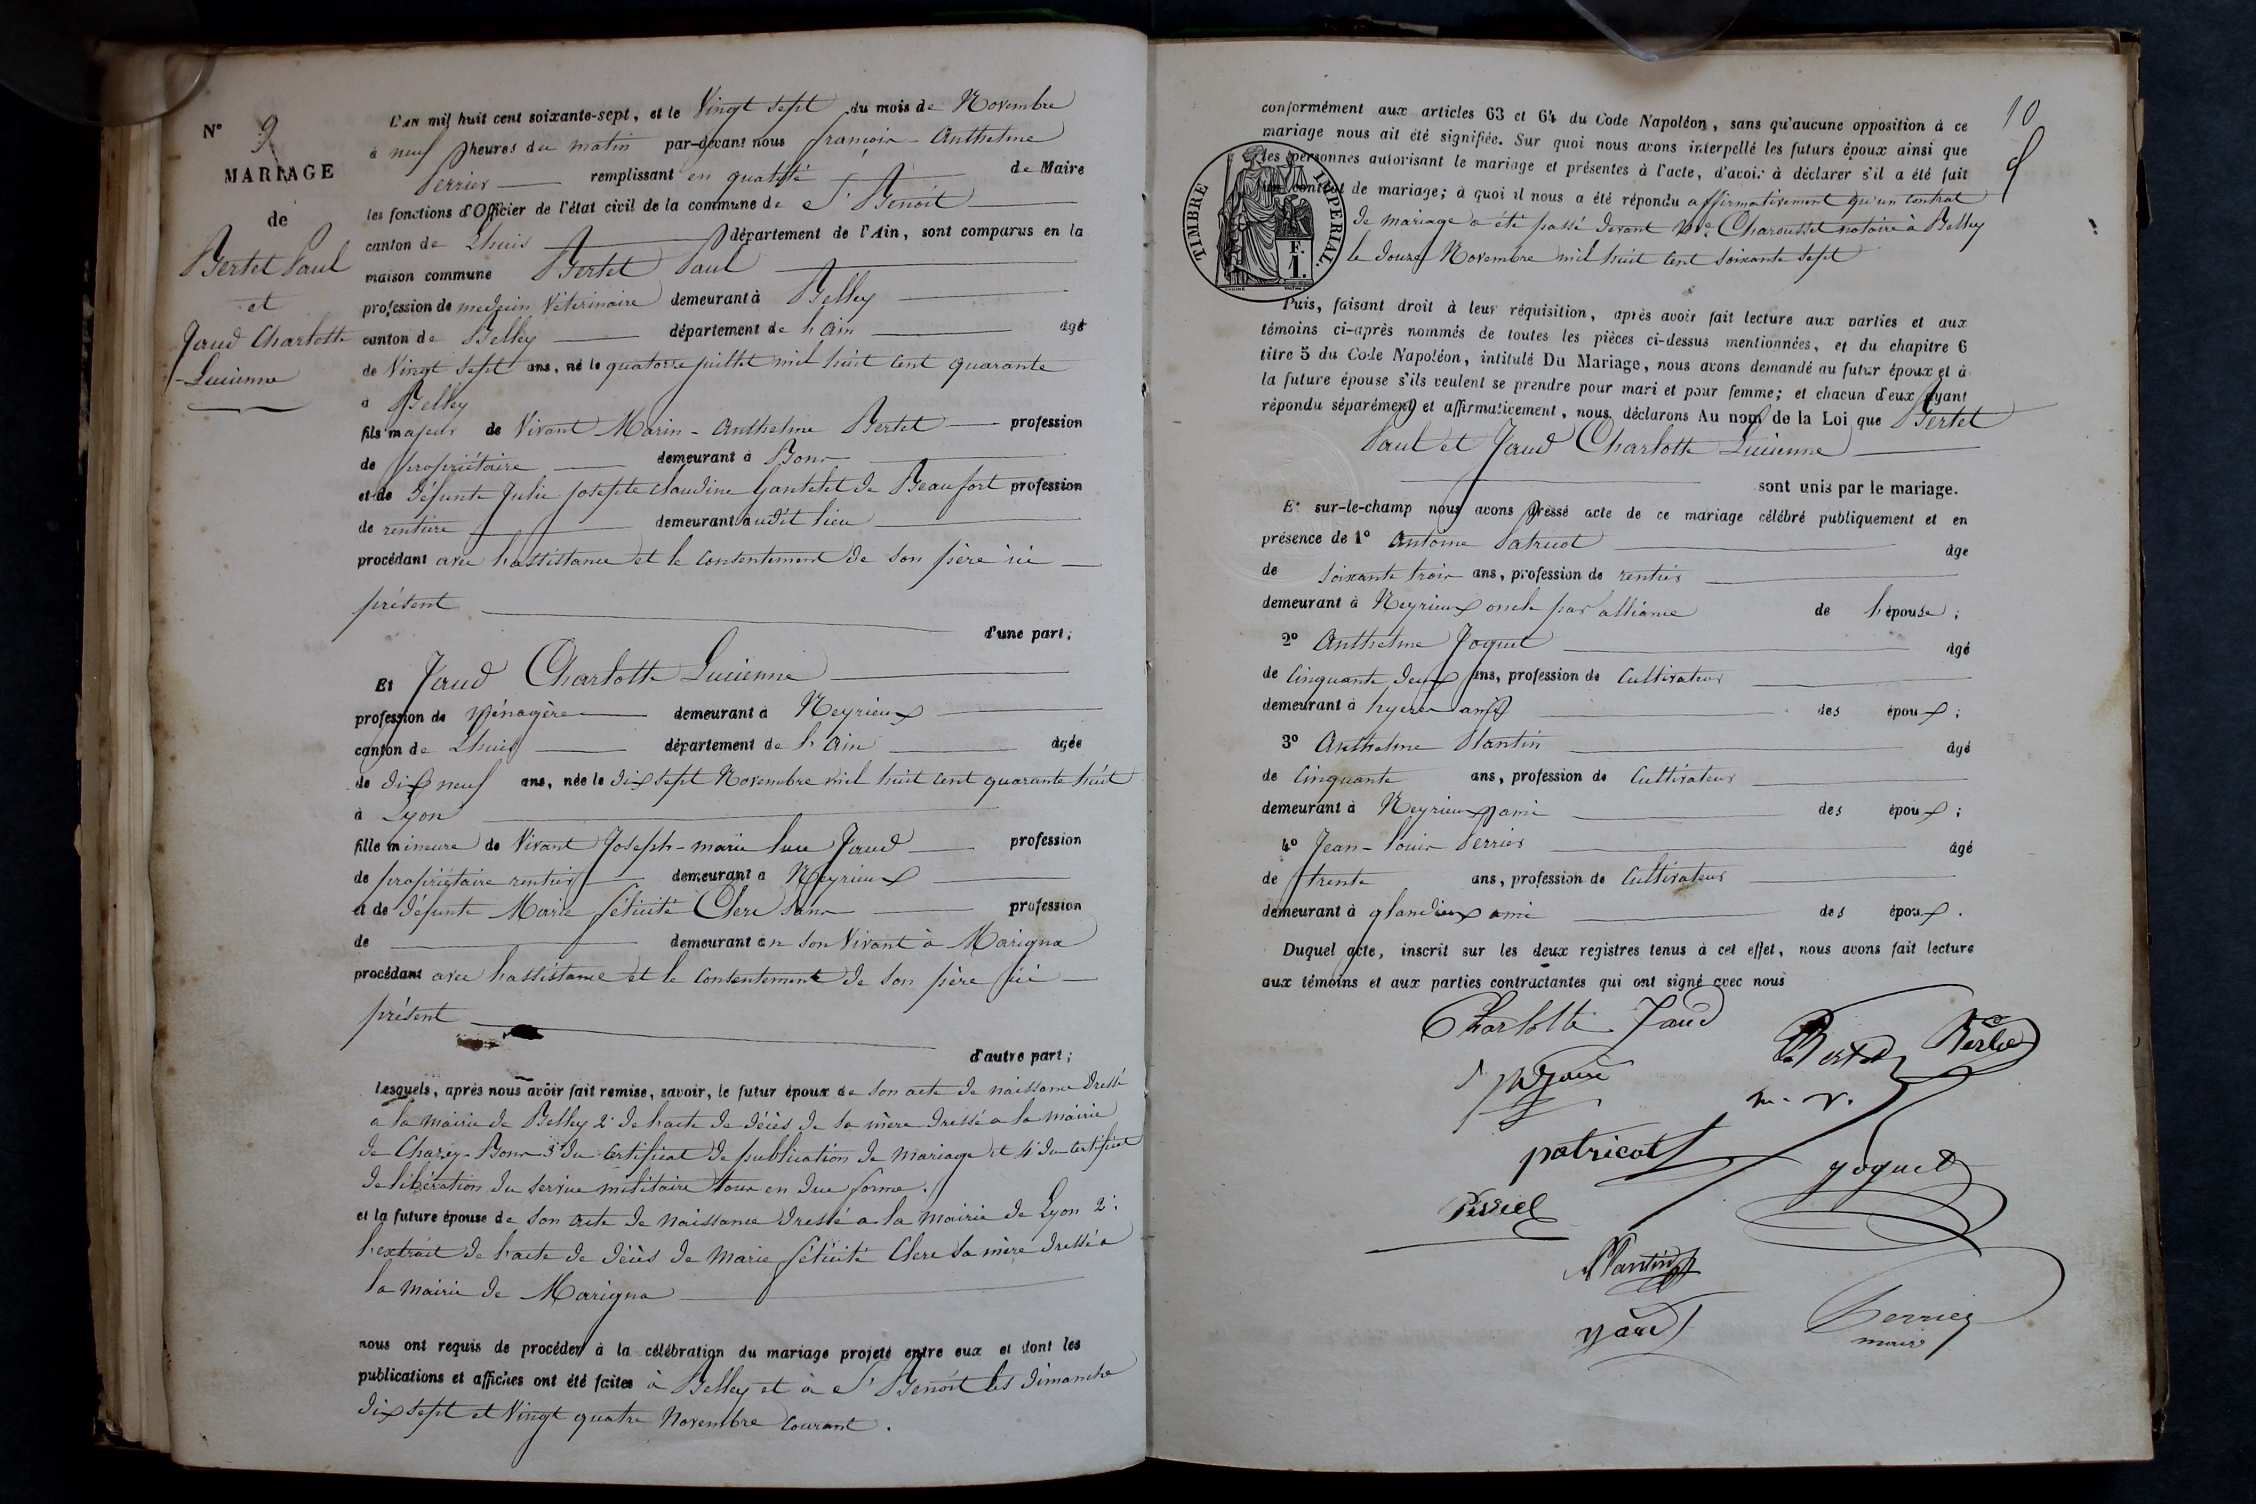 N° 9
MARIAGE
de
Bertet Paul
et
Jaud Charlotte
Lucienne
L'AN mil huit cent soixante-sept, et le Vingt sept du mois de Novembre
à neuf heures du matin par-devant nous françois - Anthelme
Perrier remplissant en qualité de Maire
les fonctions d'Officier de l'état civil de la commune de St Benoit
canton de Lhuis département de l'Ain, sont comparus en la
maison commune Bertet Paul
profession de medecin Véterinaire demeurant à Belley
canton de Belley département de l'ain âgé
de Vingt sept ans, né le quatorze juillet mil huit cent quarante
à Belley
fils majeur de Vivant Marin - Anthelme Bertet profession
de propriétaire demeurant à Bons
et de défunte Julie josepte Claudine Gantelet de Beaufort profession
de rentière demeurant audit lieu
procédant avec l'assistance et le Consentement de son père ici
présent
d'une part;
Et Jaud Charlotte Lucienne
profession de Ménagère demeurant à Neyrieux
canton de Lhuis département de l'ain âgée
de dix neuf ans, née le dix sept Novembre mil huit cent quarante huit
à Lyon
fille mineure de Vivant Joseph-marie Luc Jaud profession
de propriétaire rentier demeurant à Neyrieux
et de défunte Marie félicité Clere sans profession
de demeurant en son Vivant à Marigna
procédant avec l'assistance et le Consentement de son père ici
présent
d'autre part;
Lesquels, après nous avoir fait remise, savoir, le futur époux de son acte de naissance dressé
a la mairie de Belley 2° de l'acte de décès de sa mère dressé a la mairie
de Chazey-Bons 3° du certificat de publication de mariage et 4° du certificat
de libération du service militaire tous en due forme.
et la future épouse de son acte de naissance dressé a la mairie de Lyon 2°
l'extrait de l'acte de décès de Marie félicité Clere sa mère dressé a
la mairie de Marigna
nous ont requis de procéder à la célébration du mariage projeté entre eux et dont les
publications et affiches ont été faites à Belley et à St Benoit les dimanche
dix sept et Vingt quatre Novembre Courant.
10
conformément aux articles 63 et 64 du Code Napoléon, sans qu'aucune opposition à ce
mariage nous ait été signifiée. Sur quoi nous avons interpellé les futurs époux ainsi que
les personnes autorisant le mariage et présentes à l'acte, d'avoir à déclarer s'il a été fait
un contrat de mariage; à quoi il nous a été répondu affirmativement qu'un Contrat
de mariage a été passé devant Me Charousset notaire à Belley
le douze Novembre mil huit cent soixante sept
TIMBRE IMPERIAL.
F.
1.
Puis, faisant droit à leur réquisition, après avoir fait lecture aux parties et aux
témoins ci-après nommés de toutes les pièces ci-dessus mentionnées, et du chapitre 6
titre 5 du Code Napoléon, intitulé Du Mariage, nous avons demandé au futur époux et à
la future épouse s'ils veulent se prendre pour mari et pour femme; et chacun d'eux ayant
répondu séparément et affirmativement, nous déclarons Au nom de la Loi que Bertet
Paul et Jaud Charlotte Lucienne
sont unis par le mariage.
Et sur-le-champ nous avons dressé acte de ce mariage célébré publiquement et en
présence de 1° Antoine Patricot âge
de soixante trois ans, profession de rentier
demeurant à Neyrieux oncle par alliance de l'épouse;
2° Anthelme Joguet âgé
de Cinquante deux ans, profession de Cultivateur
demeurant à hyeres ami des époux;
3° Anthelme Plantin âgé
de Cinquante ans, profession de Cultivateur
demeurant à Neyrieux ami des époux;
4° Jean-Louis Perrier âgé
de trente ans, profession de Cultivateur
demeurant à glandieux ami des époux.
Duquel acte, inscrit sur les deux registres tenus à cet effet, nous avons fait lecture
aux témoins et aux parties contractantes qui ont signé avec nous
Charlotte Jaud
Bertet
m. v.
patricot
joguet
Plantin
Perrier
maire